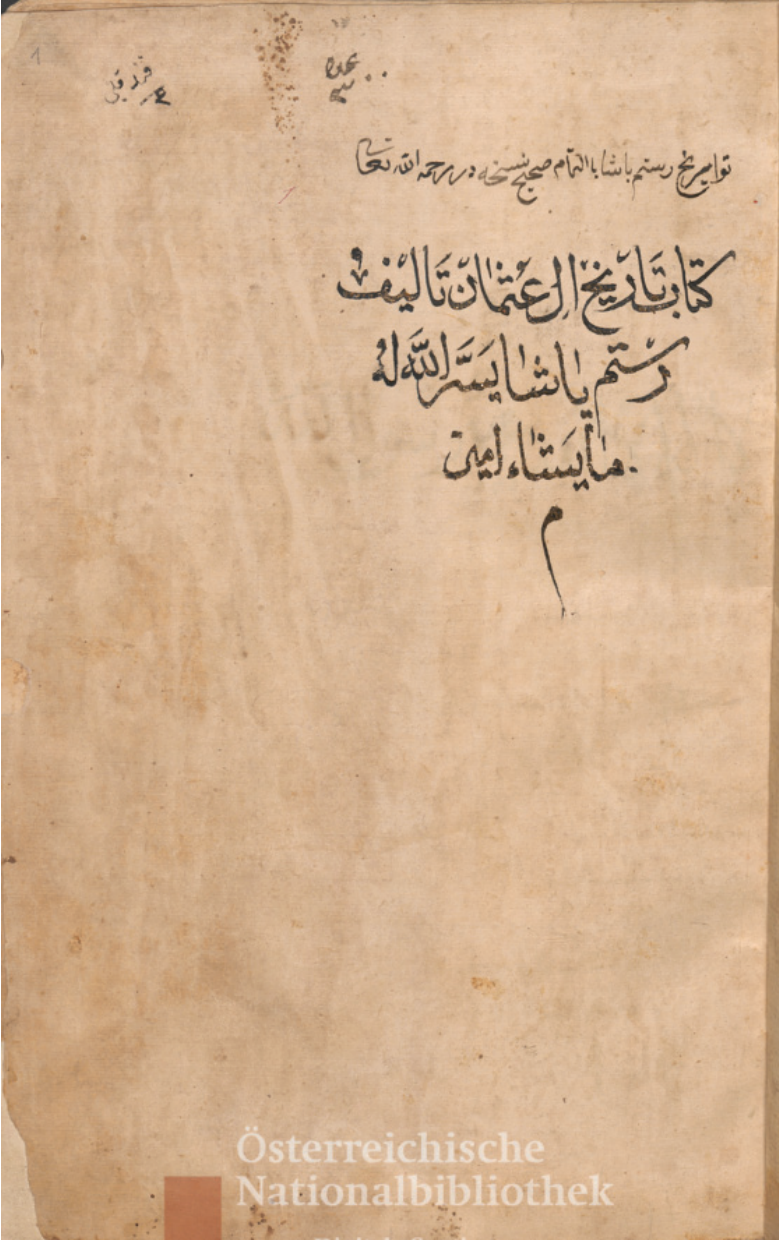 1
تواريخ رستم پاشا بالتمام صحيح نسخه در رحمه الله تعالى
كتاب تَاريخ ال عثمان تَاليف
رستم پاشا يَسَّر اللّٰه لهُ
ما يَشاء امين
م
Österreichische
Nationalbibliothek